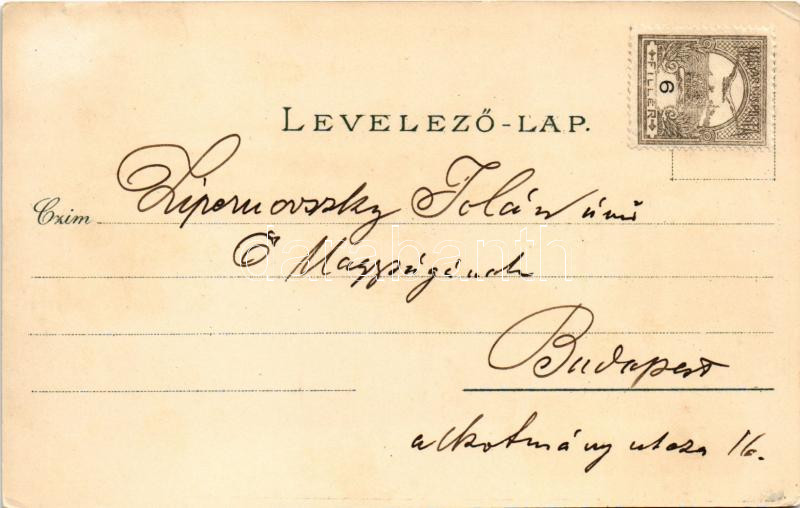 MAGYAR KIR. POSTA
6
FILLÉR
LEVELEZŐ-LAP.
Czim Zipernovszky Jolán úrnő
Ő Nagyságának
darabanth
Budapest
alkotmány utcza 16.